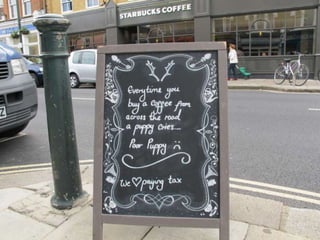 STARBUCKS COFFEE
Everytime you
buy a coffee from
across the road
a puppy cries...
Poor Puppy :(
we ♡ paying tax